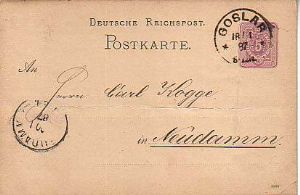 DEUTSCHE REICHSPOST.
POSTKARTE.
GOSLAR
An
Herrn Carl Kogge
in Neudamm